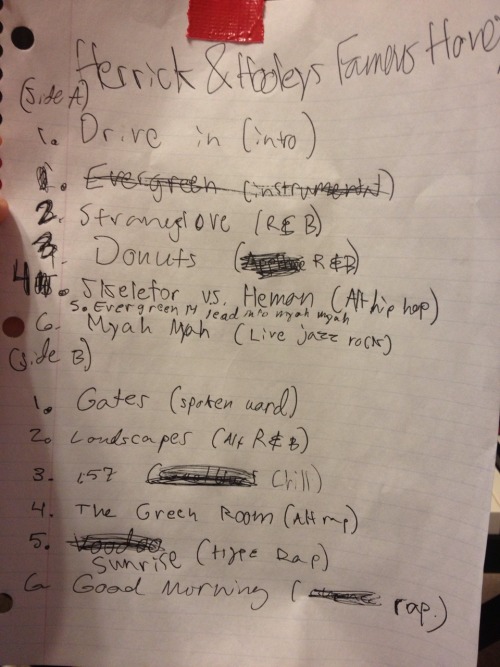 Herrick & Hooleys Famous Hone
(Side A)
1. Drive in (intro)
1. Evergreen (instrumental)
2. Strangelove (R&B)
3. Donuts ( R&B)
4. Skeletor vs. Heman (Alt hip hop)
5. Evergreen Pt lead into myah myah
6. Myah Myah (Live jazz rock)
(side B)
1. Gates (spoken word)
2. Landscapes (Alt R&B)
3. 1,57 ( Chill)
4. The Green Room (Alt rap)
5. Voodoo
Sunrise (hype Rap)
6. Good Morning ( rap.)